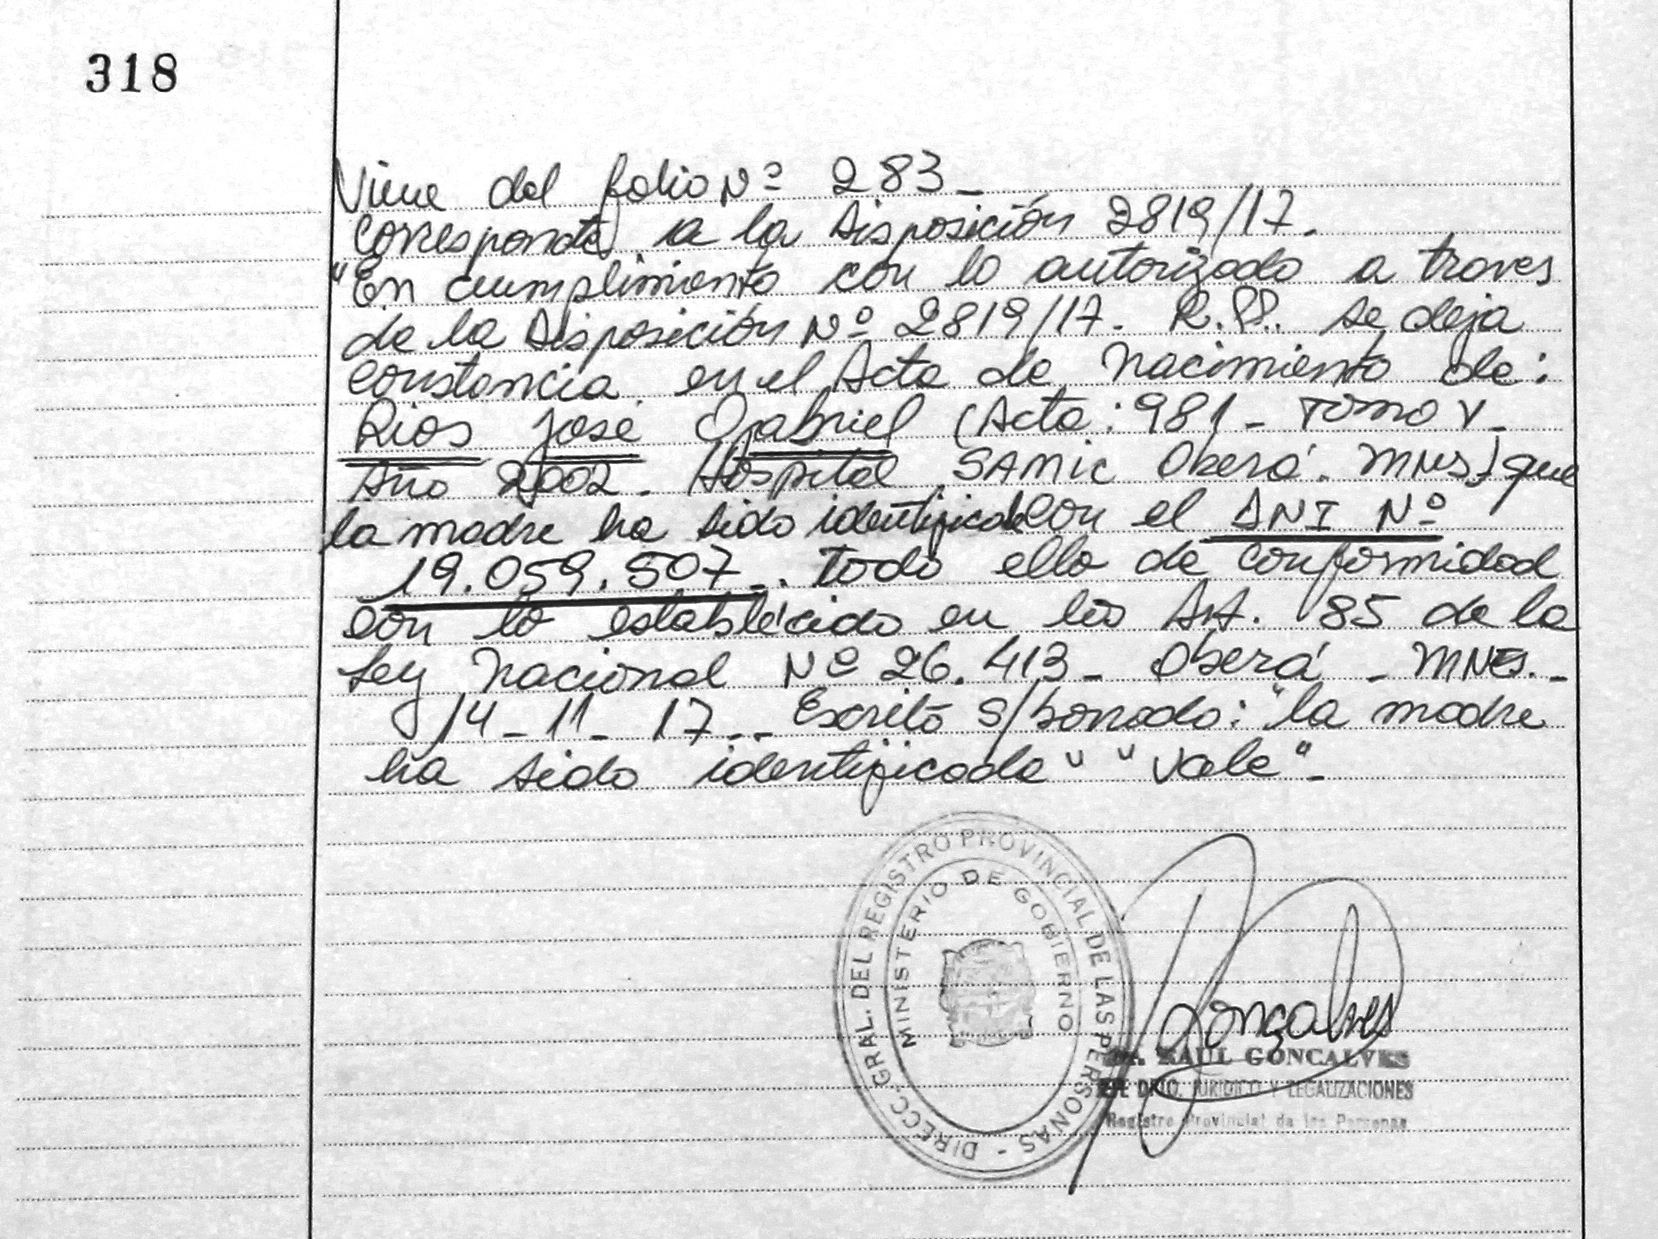 318
Viene del folio Nº 283_
Corresponde a la Disposición 2819/17.
"En cumplimiento con lo autorizado a traves
de la Disposición Nº 2819/17. R.P. se deja
constancia en el Acta de Nacimiento de:
Rios José Gabriel (Acta: 981_ Tomo V_
Año 2002. Hospital SAMIC Oberá. MNES) que
la madre ha sido identificada con el DNI Nº
19.059.507_. Todo ello de conformidad
con lo establecido en los Art. 85 de la
Ley Nacional Nº 26.413_ Oberá _ MNES._
14_11_17_. Escrito s/borrado: "la madre
ha sido identificada" "vale"_
DIRECC. GRAL. DEL REGISTRO PROVINCIAL DE LAS PERSONAS -
MINISTERIO DE GOBIERNO
Gonçalves
Dr. RAUL GONCALVES
JEFE DPTO. JURIDICO Y LEGALIZACIONES
Registro Provincial de las Personas